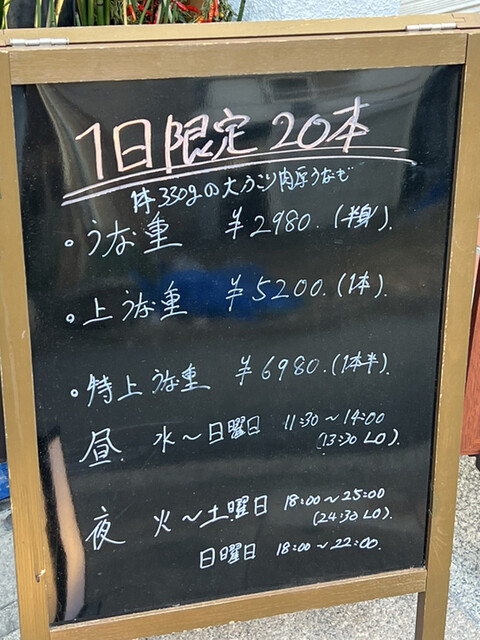 1日限定 20本
1本330gの大ぶり肉厚うなぎ
・うな重 ¥2980.(半身).
・上うな重 ¥5200.(1本).
・特上うな重 ¥6980.(1本半).
昼. 水〜日曜日 11:30〜14:00
(13:30 LO).
夜 火〜土曜日 18:00〜25:00
(24:30 LO).
日曜日 18:00〜22:00.